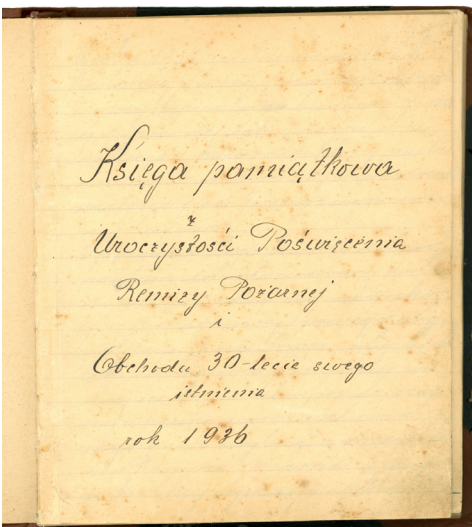 Księga pamiątkowa
z
Uroczystości Poświęcenia
Remizy Pożarnej
i
Obchodu 30-lecie swego
istnienia
rok 1936